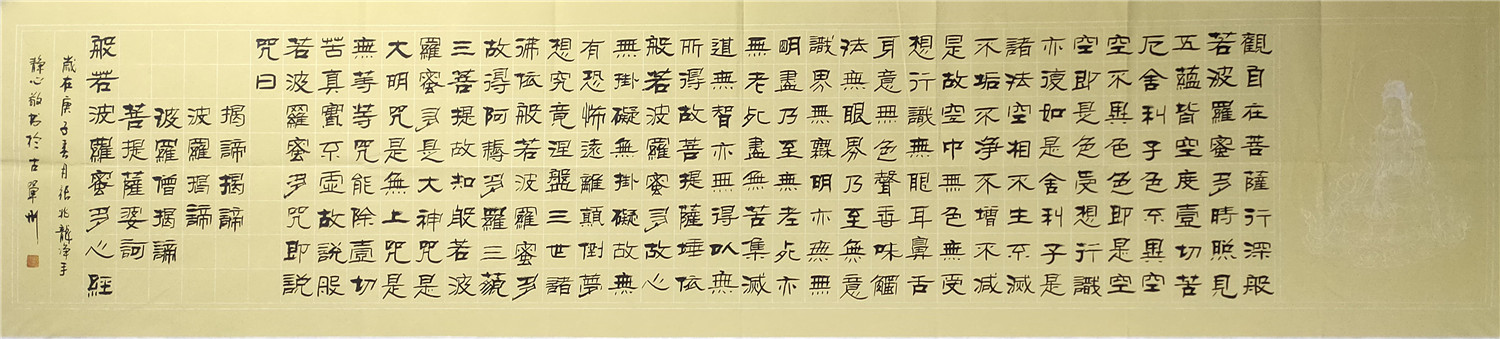 觀自在菩薩行深般
若波羅蜜多時照見
五蘊皆空度壹切苦
厄舍利子色不異空
空不異色色即是空
空即是色受想行識
亦復如是舍利子是
諸法空相不生不滅
不垢不淨不增不減
是故空中無色無受
想行識無眼耳鼻舌
身意無色聲香味觸
法無眼界乃至無意
識界無無明亦無無
明盡乃至無老死亦
無老死盡無苦集滅
道無智亦無得以無
所得故菩提薩埵依
般若波羅蜜多故心
無掛礙無掛礙故無
有恐怖遠離顛倒夢
想究竟涅盤三世諸
佛依般若波羅蜜多
故得阿耨多羅三藐
三菩提故知般若波
羅蜜多是大神咒是
大明咒是無上咒是
無等等咒能除壹切
苦真實不虛故說般
若波羅蜜多咒即說
咒曰
揭諦揭諦
波羅揭諦
波羅僧揭諦
菩提薩婆訶
般若波羅蜜多心經
歲在庚子春月張兆龍淨手
靜心敬書於古單州